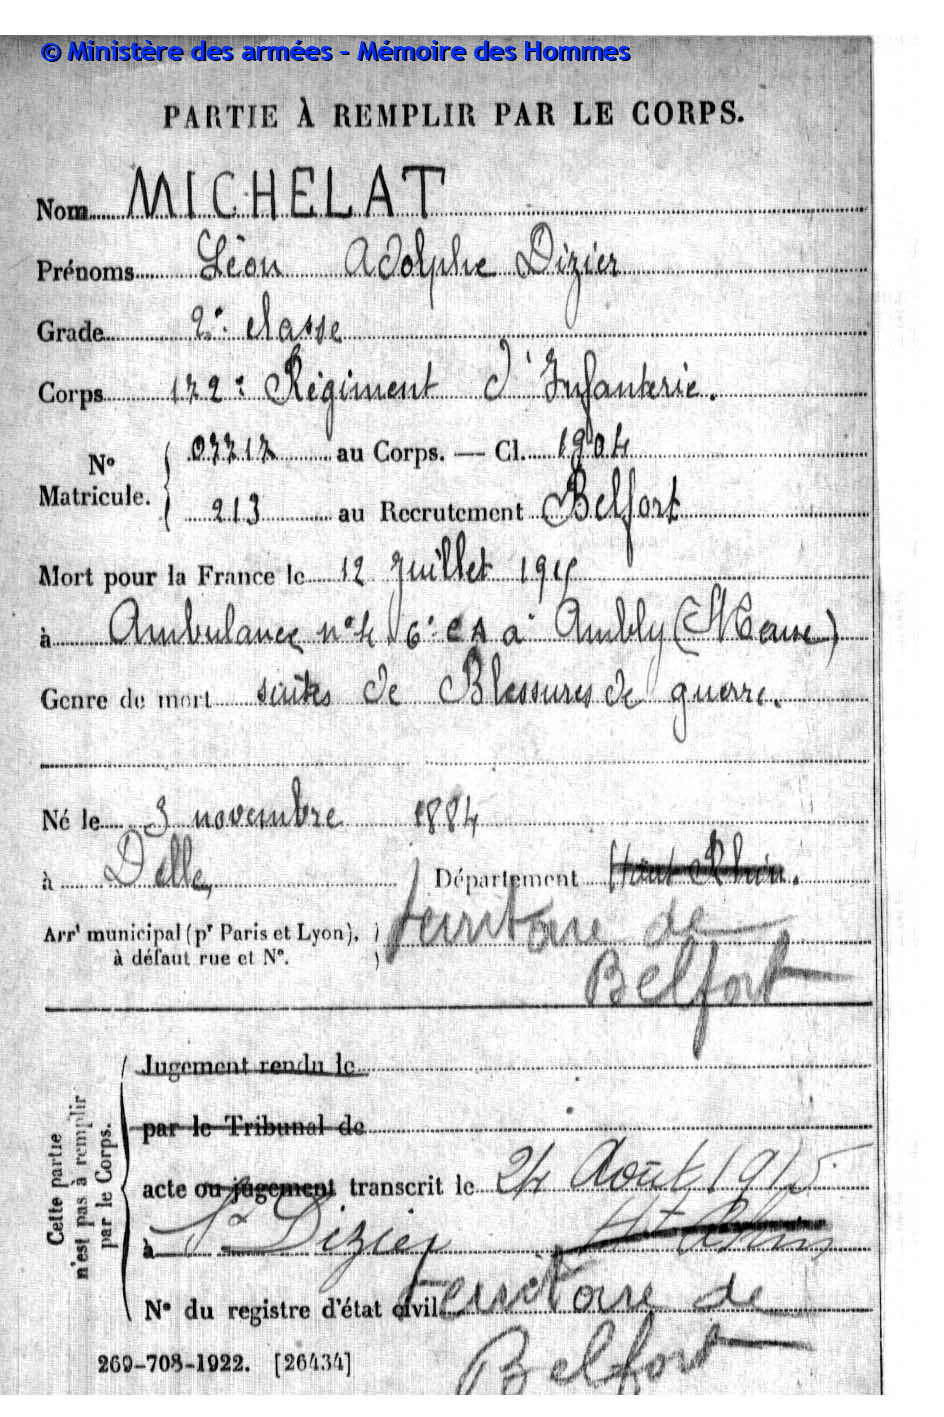 © Ministère des armées - Mémoire des Hommes
PARTIE À REMPLIR PAR LE CORPS.
Nom MICHELAT
Prénoms Léon Adolphe Dizier
Grade 2e classe
Corps 172e Régiment d'Infanterie.
N° Matricule. 07717 au Corps. — Cl. 1904
213 au Recrutement Belfort
Mort pour la France le 12 Juillet 1915
à Ambulance n°4 6e CA à Ambly (Meuse)
Genre de mort suites de Blessures de guerre.
Né le 3 novembre 1884
à Delle, Département Haut Rhin.
Arrt municipal (pr Paris et Lyon), territoire de
à défaut rue et N°. Belfort
Cette partie n'est pas à remplir par le Corps.
Jugement rendu le
par le Tribunal de
acte ou jugement transcrit le 24 Août 1915
à St Dizier Ht Rhin
N° du registre d'état civil territoire de
Belfort
269-708-1922. [26434]